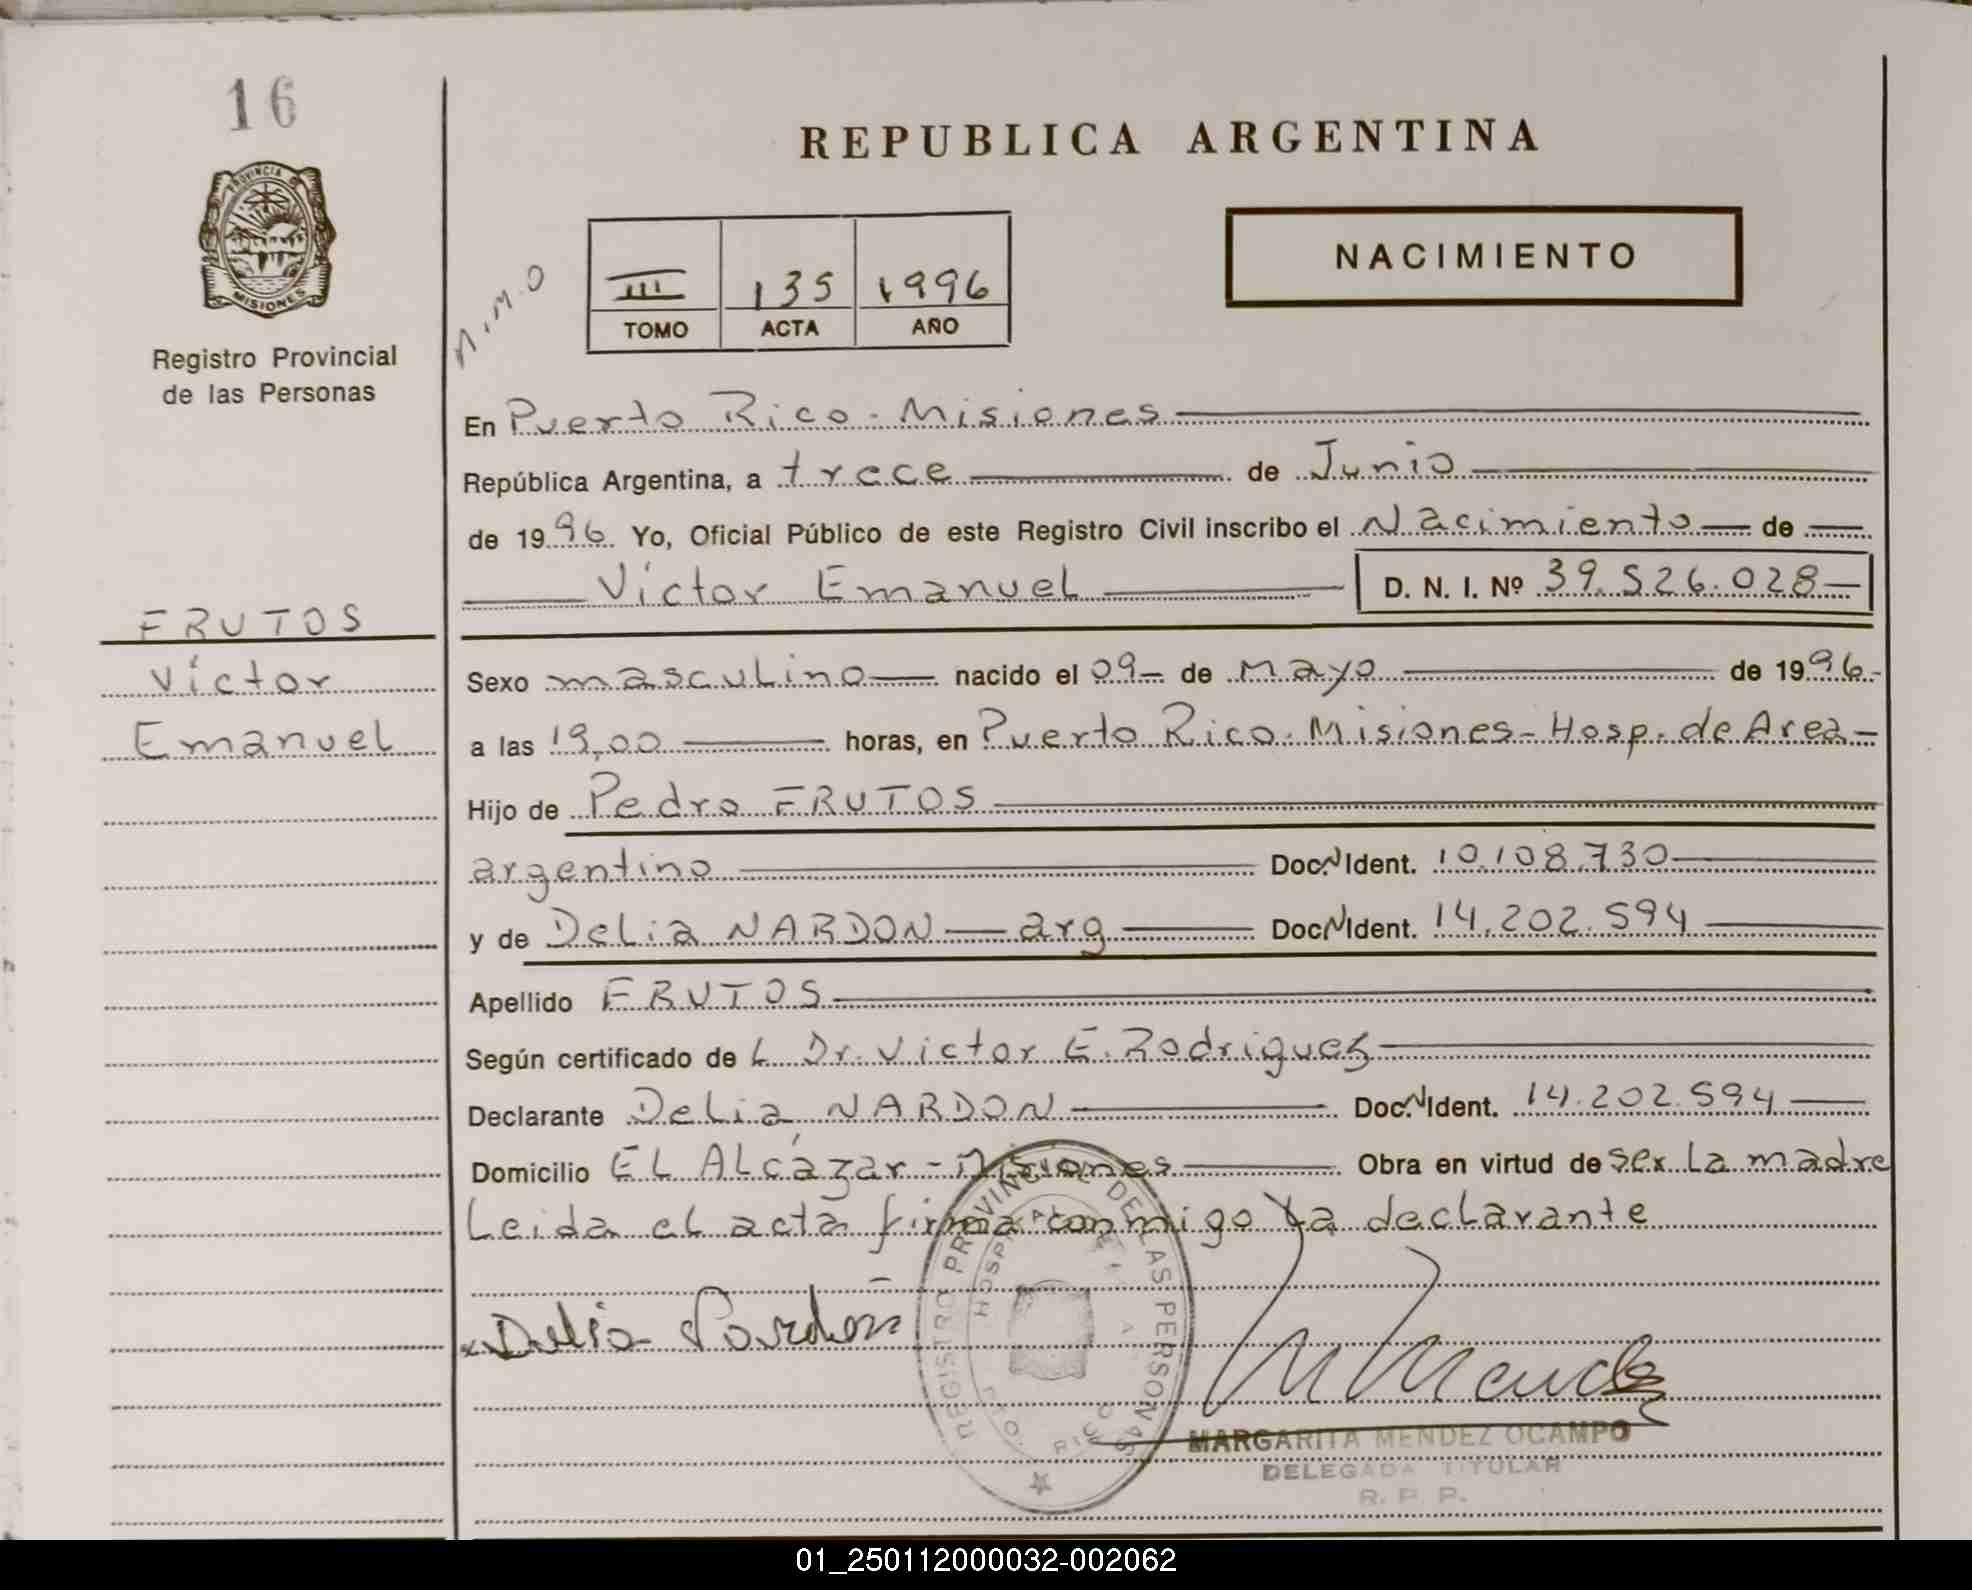 16
PROVINCIA DE
MISIONES
Registro Provincial
de las Personas
FRUTOS
Víctor
Emanuel
REPUBLICA ARGENTINA
NACIMIENTO
III 135 1996
TOMO ACTA AÑO
En Puerto Rico - Misiones
República Argentina, a trece de Junio
de 1996 Yo, Oficial Público de este Registro Civil inscribo el Nacimiento de
Víctor Emanuel D. N. I. Nº 39.526.028
Sexo masculino nacido el 09 de Mayo de 1996
a las 19,00 horas, en Puerto Rico. Misiones - Hosp. de Area
Hijo de Pedro FRUTOS
argentino Doc. N Ident. 10.108.730
y de Delia NARDON arg Doc. N Ident. 14.202.594
Apellido FRUTOS
Según certificado de L Dr. Victor E. Rodriguez
Declarante Delia NARDON Doc. N Ident. 14.202.594
Domicilio EL ALcázar - Misiones Obra en virtud de ser La madre
Leida el acta firma conmigo La declarante
REGISTRO PROVINCIAL DE LAS PERSONAS
MARGARITA MENDEZ OCAMPO
DELEGADA TITULAR
R. P. P.
01_250112000032-002062